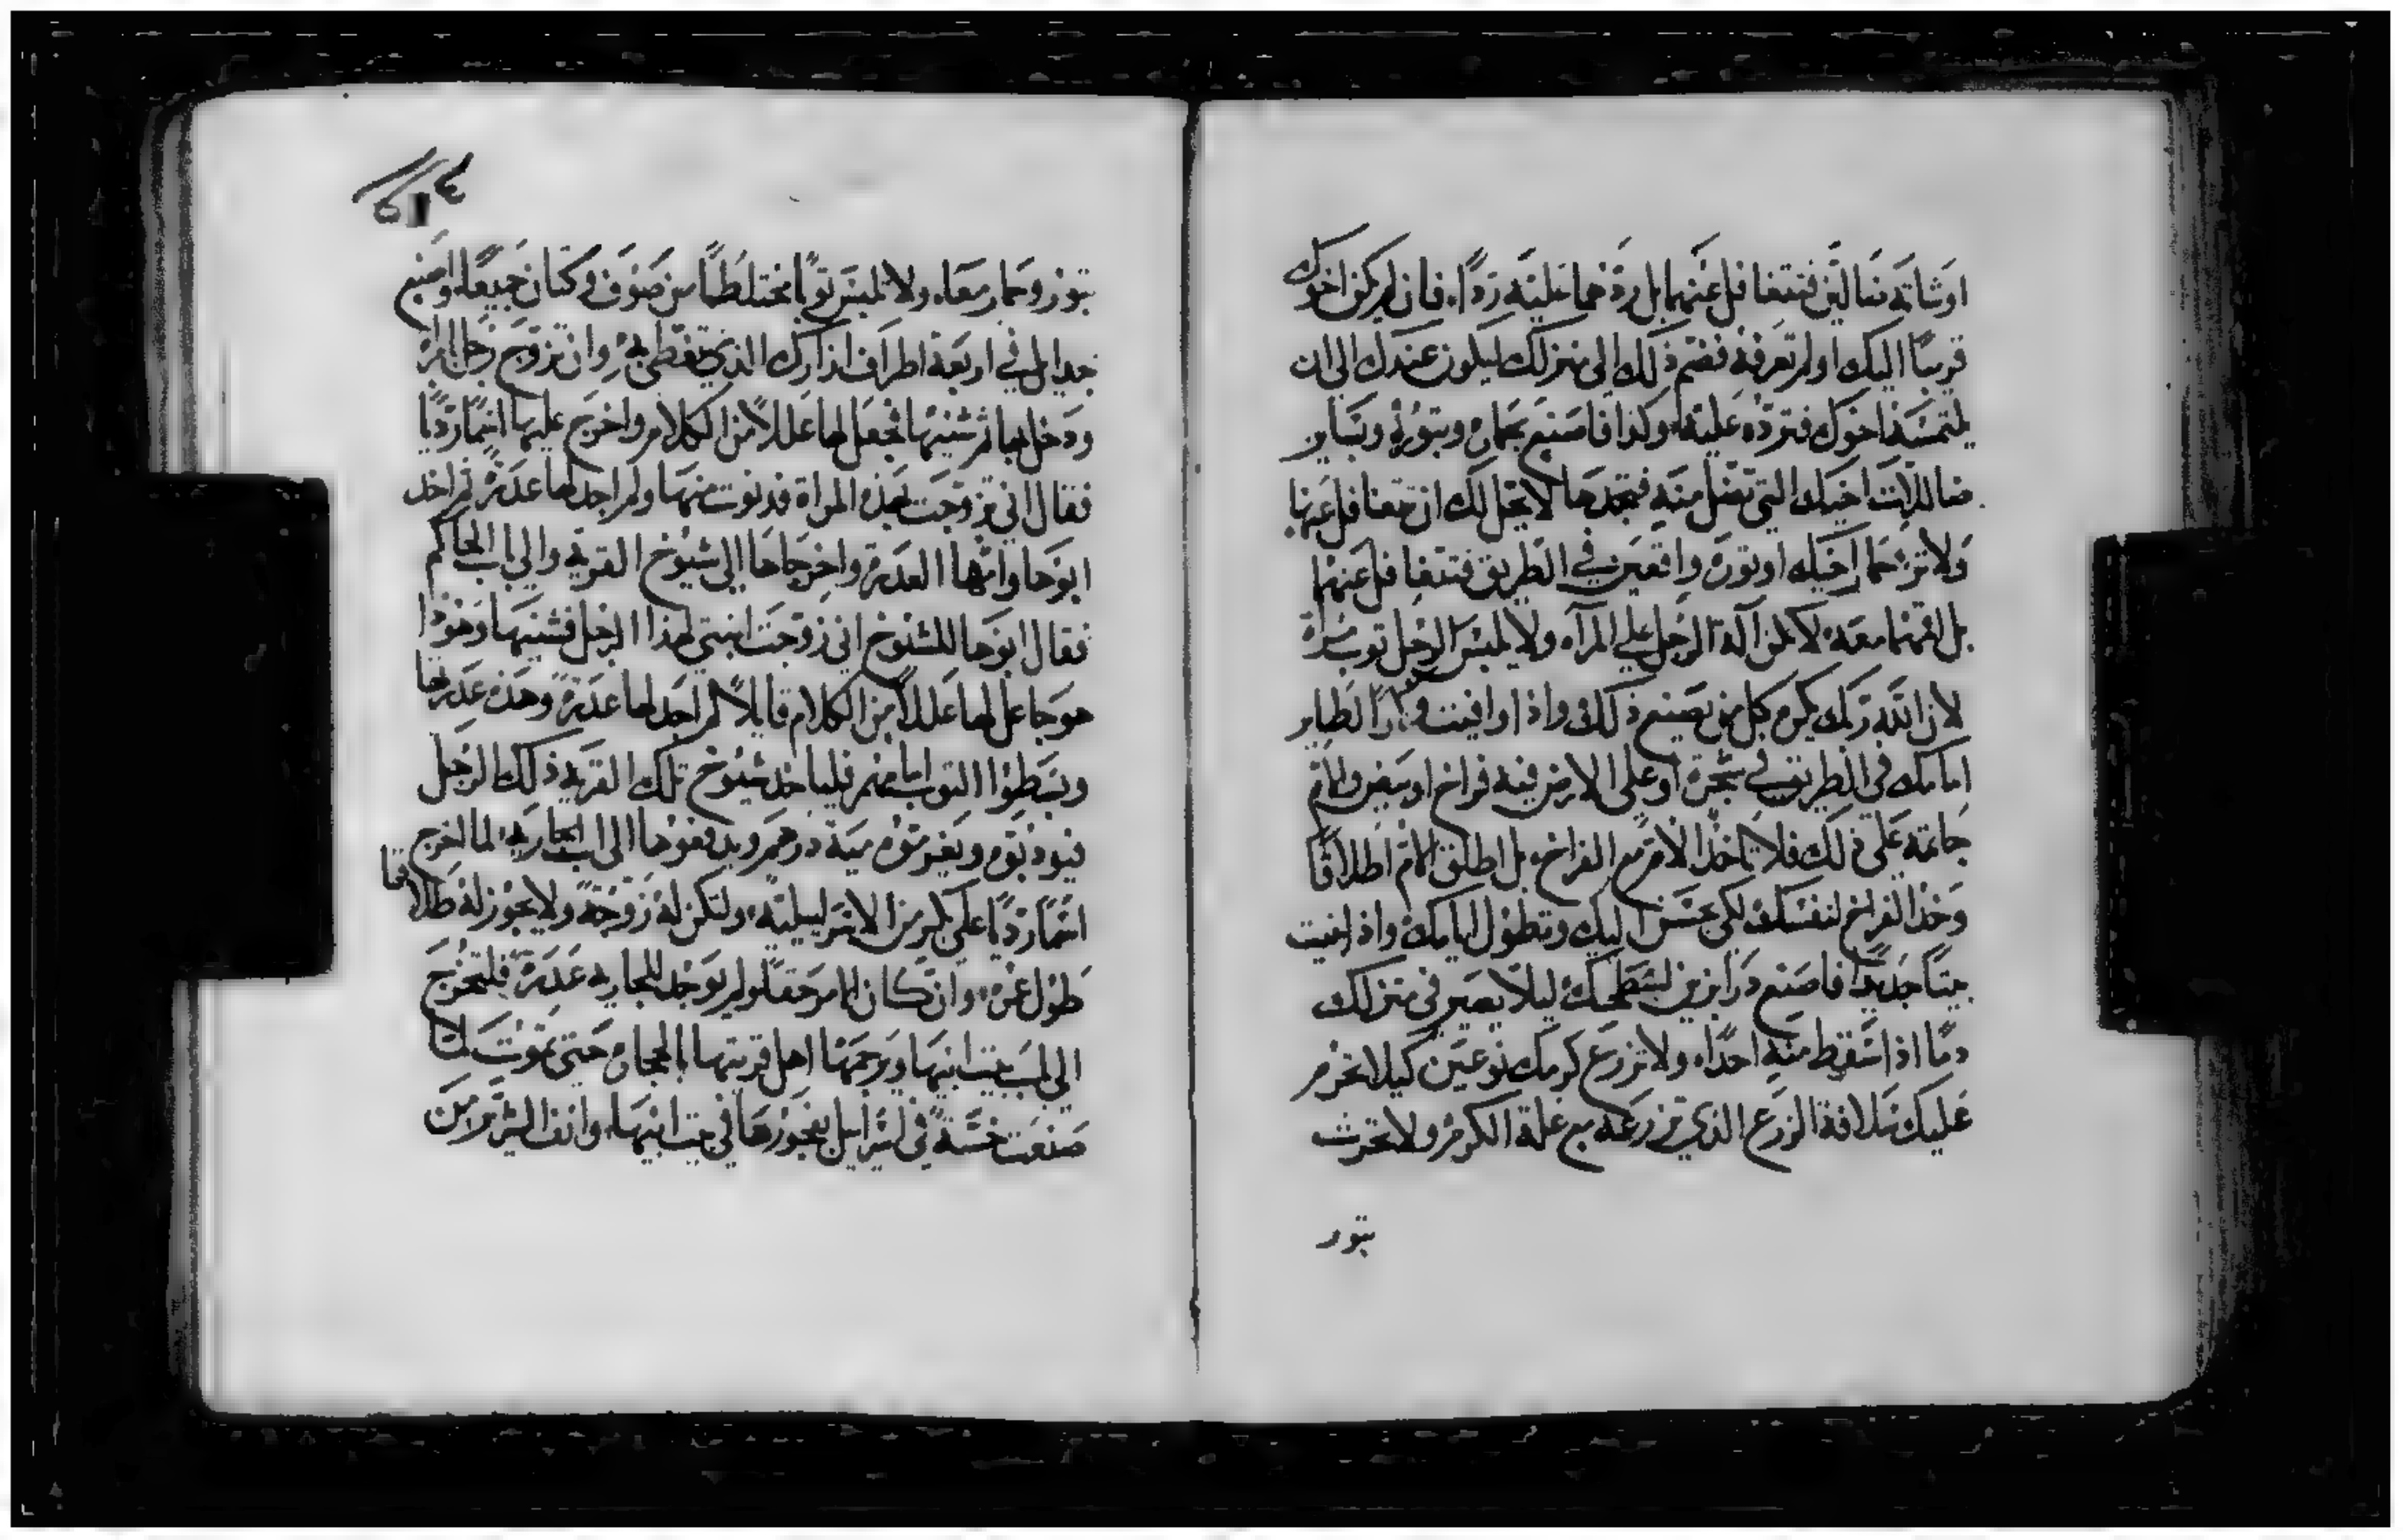 او شاته ضالين فتتغافل عنهما بل ردهما عليه ردًا، فان لم يكن اخوك
قريبًا اليك او لم تعرفه فضم ذلك الى منزلك ليكون عندك الى ان
يلتمسه اخوك فترده عليه، وكذا فاصنع بحماره وبثوره وبساير
ضالات اخيك التي تضل منه فتجدها لا يحل لك ان تتغافل عنها
ولا تر حمار اخيك او ثوره واقعين في الطريق فتتغافل عنهما
بل اقمهما معه لا تكن آلة الرجل على المرآه ولا يلبس الرجل ثوب مراة
لان الله ربك يكره كل من يصنع ذلك واذا وافيت وكرًا لطاير
امامك في الطريق في شجرة او على الارض فيه فراخ او بيض والام
جاثمه على ذلك فلا تاخذ الام مع الفراخ، بل اطلق الام اطلاقًا
وخذ الفراخ لنفسك لكي يحسن اليك وتطول ايامك واذا بنيت
بيتًا جديدًا فاصنع درابزين لسطحك ليلا يصير في منزلك
دمًا اذا سقط منه احدًا، ولا تزرع كرمك نوعين كيلا تحرم
عليك سلافة الزرع الذي تزرعه مع غلة الكرم ولا تحرث
بثور
بثور وحمار معًا، ولا تلبس ثوبًا مختلطًا من صوف وكتان جميعًا، واصنع
جدايل في اربعة اطراف ازارك الذي تتغطى به، وان تزوج رجل امراة
ودخل بها ثم شنيها فجعل لها عللاً من الكلام واخرج عليها اسمًا رديًا
فقال اني تزوجت بهذه المراة فدنوت منها ولم اجد لها عذرة ثم اخذ
ابوها وامها العذرة واخرجاها الى شيوخ القرية والى باب الحاكم
فقال ابوها للشيوخ اني زوجت ابنتي لهذا الرجل فشنيها وهوذا
هو جاعل لها عللاً من الكلام قايلاً لم اجد لها عذرة وهذه عذرتها
ويبسطوا الثوب امامهم فلياخذ شيوخ تلك القرية ذلك الرجل
فيودبوه ويغرموه مية درهم ويدفعوها الى اب الجارية لما اخرج
اسمًا رديًا على بكر من الاسراييلية، ولتكن له زوجة ولا يجوز له طلاقها
طول عمره، وان كان الامر حقًا ولم يوجد للجارية عذرة فلتخرج
الى باب بيت ابيها ويرجمها اهل قريتها بالحجاره حتى تموت لما
صنعت خسة في اسراييل بفجورها في بيت ابيها، وانف الشر من